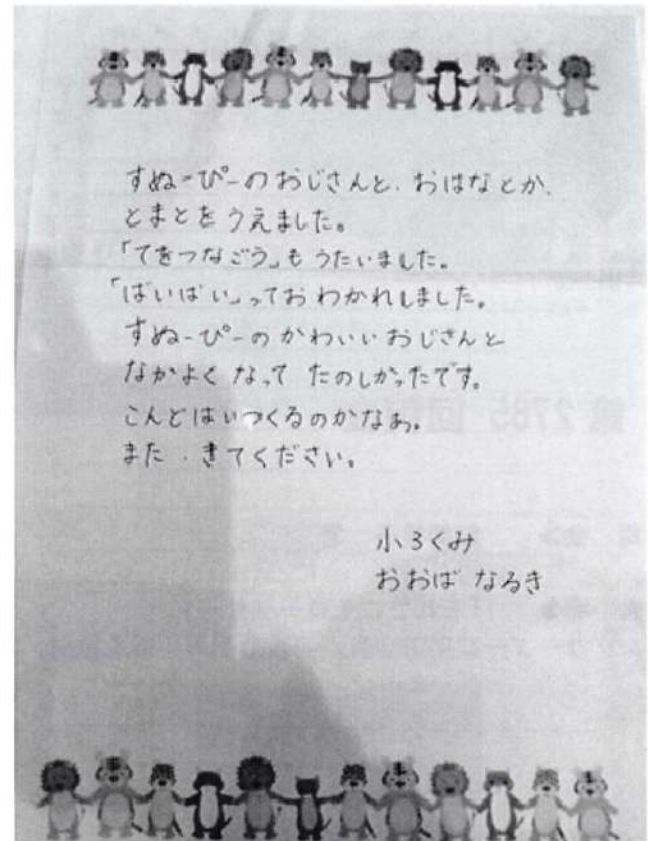 すぬーぴーのおじさんと、おはなとか、
とまとをうえました。
「てをつなごう」もうたいました。
「ばいばい」っておわかれしました。
すぬーぴーのかわいいおじさんと
なかよくなって たのしかったです。
こんどはいつくるのかなぁ。
また、きてください。
小3くみ
おおば なるき